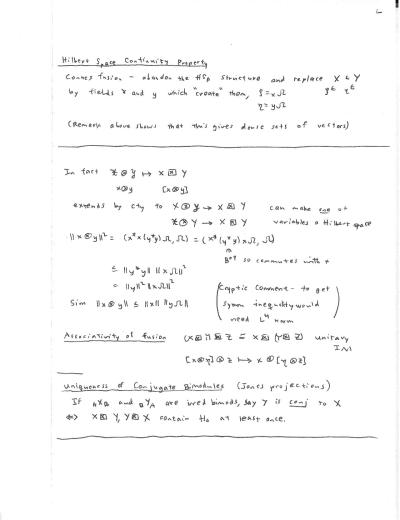 Hilbert Space Continuity Property
Connes fusion - abandon the HSp structure and replace X & Y
by fields x and y which "create" them, ξ = xΩ
η = yΩ
(Remark above shows that this gives dense sets of vectors)
In fact 𝒳 ⊗ 𝒴 ↦ X ⊠ Y
x⊗y [x⊗y]
extends by cty to X ⊗ 𝒴 → X ⊠ Y can make one of
𝒳 ⊗ Y → X ⊠ Y variables a Hilbert space
||x⊗y||² = (x*x(y*y)Ω, Ω) = (x*(y*y)xΩ, Ω)
B^op so commutes with x
≤ ||y*y|| ||xΩ||²
= ||y||² ||xΩ||²
Sim ||x⊗y|| ≤ ||x|| ||yΩ||
(Cryptic comment - to get
symm inequality would
need L⁴ norm)
Associativity of fusion (X⊠Y)⊠Z ≅ X⊠(Y⊠Z) unitary
[x⊗y]⊗z ↦ x⊗[y⊗z]
Uniqueness of Conjugate Bimodules (Jones projections)
If AXB and BYA are irred bimods, say Y is conj to X
⇔ X⊠Y, Y⊠X contain H₀ at least once.